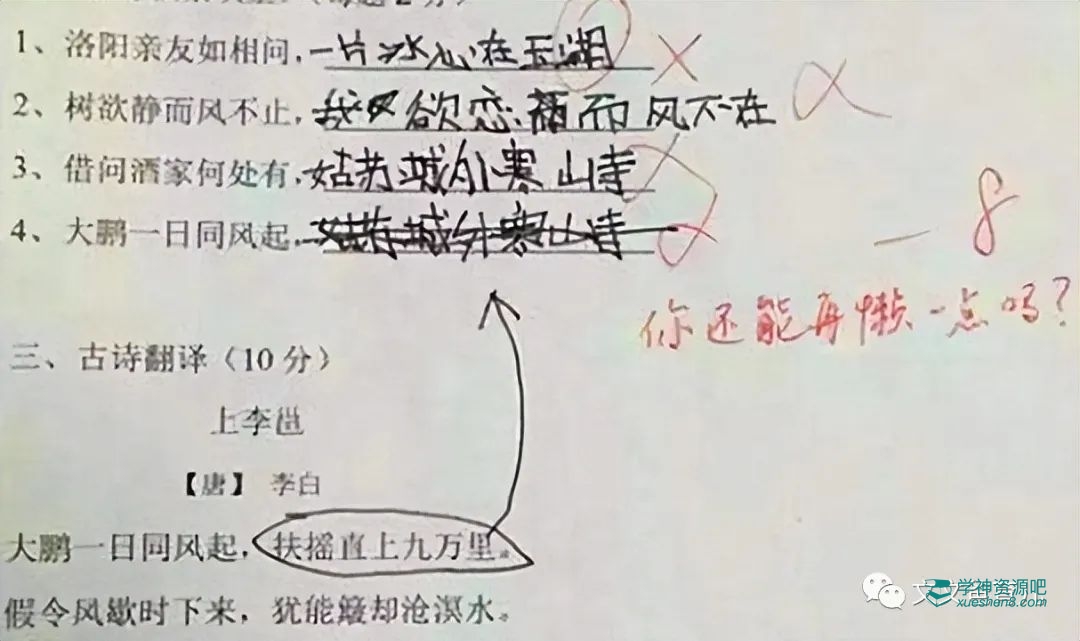 1、洛阳亲友如相问，一片冰心在玉湖
2、树欲静而风不止，我又欲恋 而风不在
3、借问酒家何处有，姑苏城外寒山寺
4、大鹏一日同风起，姑苏城外寒山寺
-8
你还能再懒一点吗？
三、古诗翻译（10分）
上李邕
【唐】 李白
大鹏一日同风起，扶摇直上九万里。
假令风歇时下来，犹能簸却沧溟水。
学神资源吧
xueshen8.com